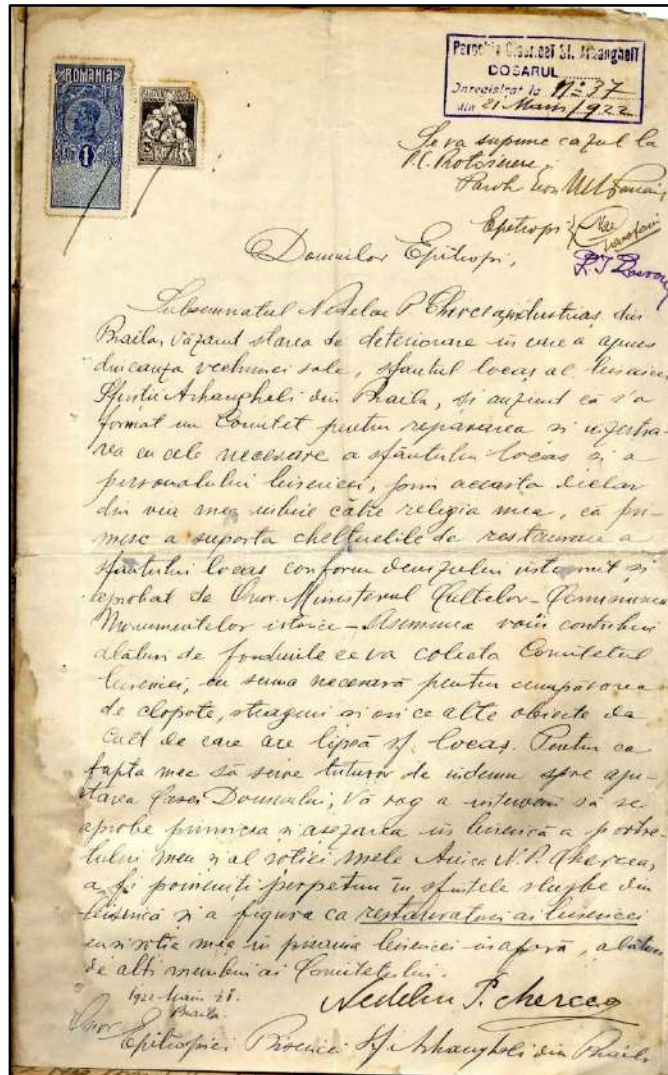 ROMANIA
1
Parochia Biser.cei Sf. Arhangheli
DOSARUL
Inregistrat la No 37
din 21 Mars / 1922
Se va supune cazul la
P.C. Protoiereu
Paroh Econ
Epitropi
Domnilor Epitropi,
Subsemnatul Nedelcu P. Chercea, industriaș, din
Braila, văzând starea de deteriorare în care a ajuns
din cauza vechimei sale, sfântul locaș al bisericei
Sfinții Arhangheli din Braila, și auzind că s'a
format un Comitet pentru repararea și înzestra-
rea cu cele necesare a sfântului locaș și a
personalului bisericei, prin aceasta declar
din vea mea iubire către religia mea, că pri-
mesc a suporta cheltuelile de restaurare a
sfântului locaș conform devizului întocmit și
aprobat de Onor. Ministerul Cultelor - Comisiunea
Monumentelor istorice - Asemenea voiu contribui
alături de fondurile ce va colecta Comitetul
bisericei, cu suma necesară pentru cumpărarea
de clopote, steaguri și orice alte obiecte de
cult de care are lipsă sf. locaș. Pentru ca
fapta mea să serve tuturor de îndemn spre aju-
tarea Casei Domnului, Vă rog a interveni să se
aprobe primirea și așezarea în biserică a portre-
tului meu și al soției mele Anica N.P. Chercea,
a fi pomeniți perpetuu în sfintele slujbe din
biserică și a figura ca restauratori ai bisericei
cu soția mea în pisania bisericei în afară, alături
de alți membri ai Comitetului.
Braila
Nedelcu P. Chercea
Onor
Epitropiei Bisericei Sf Arhangheli din Braila